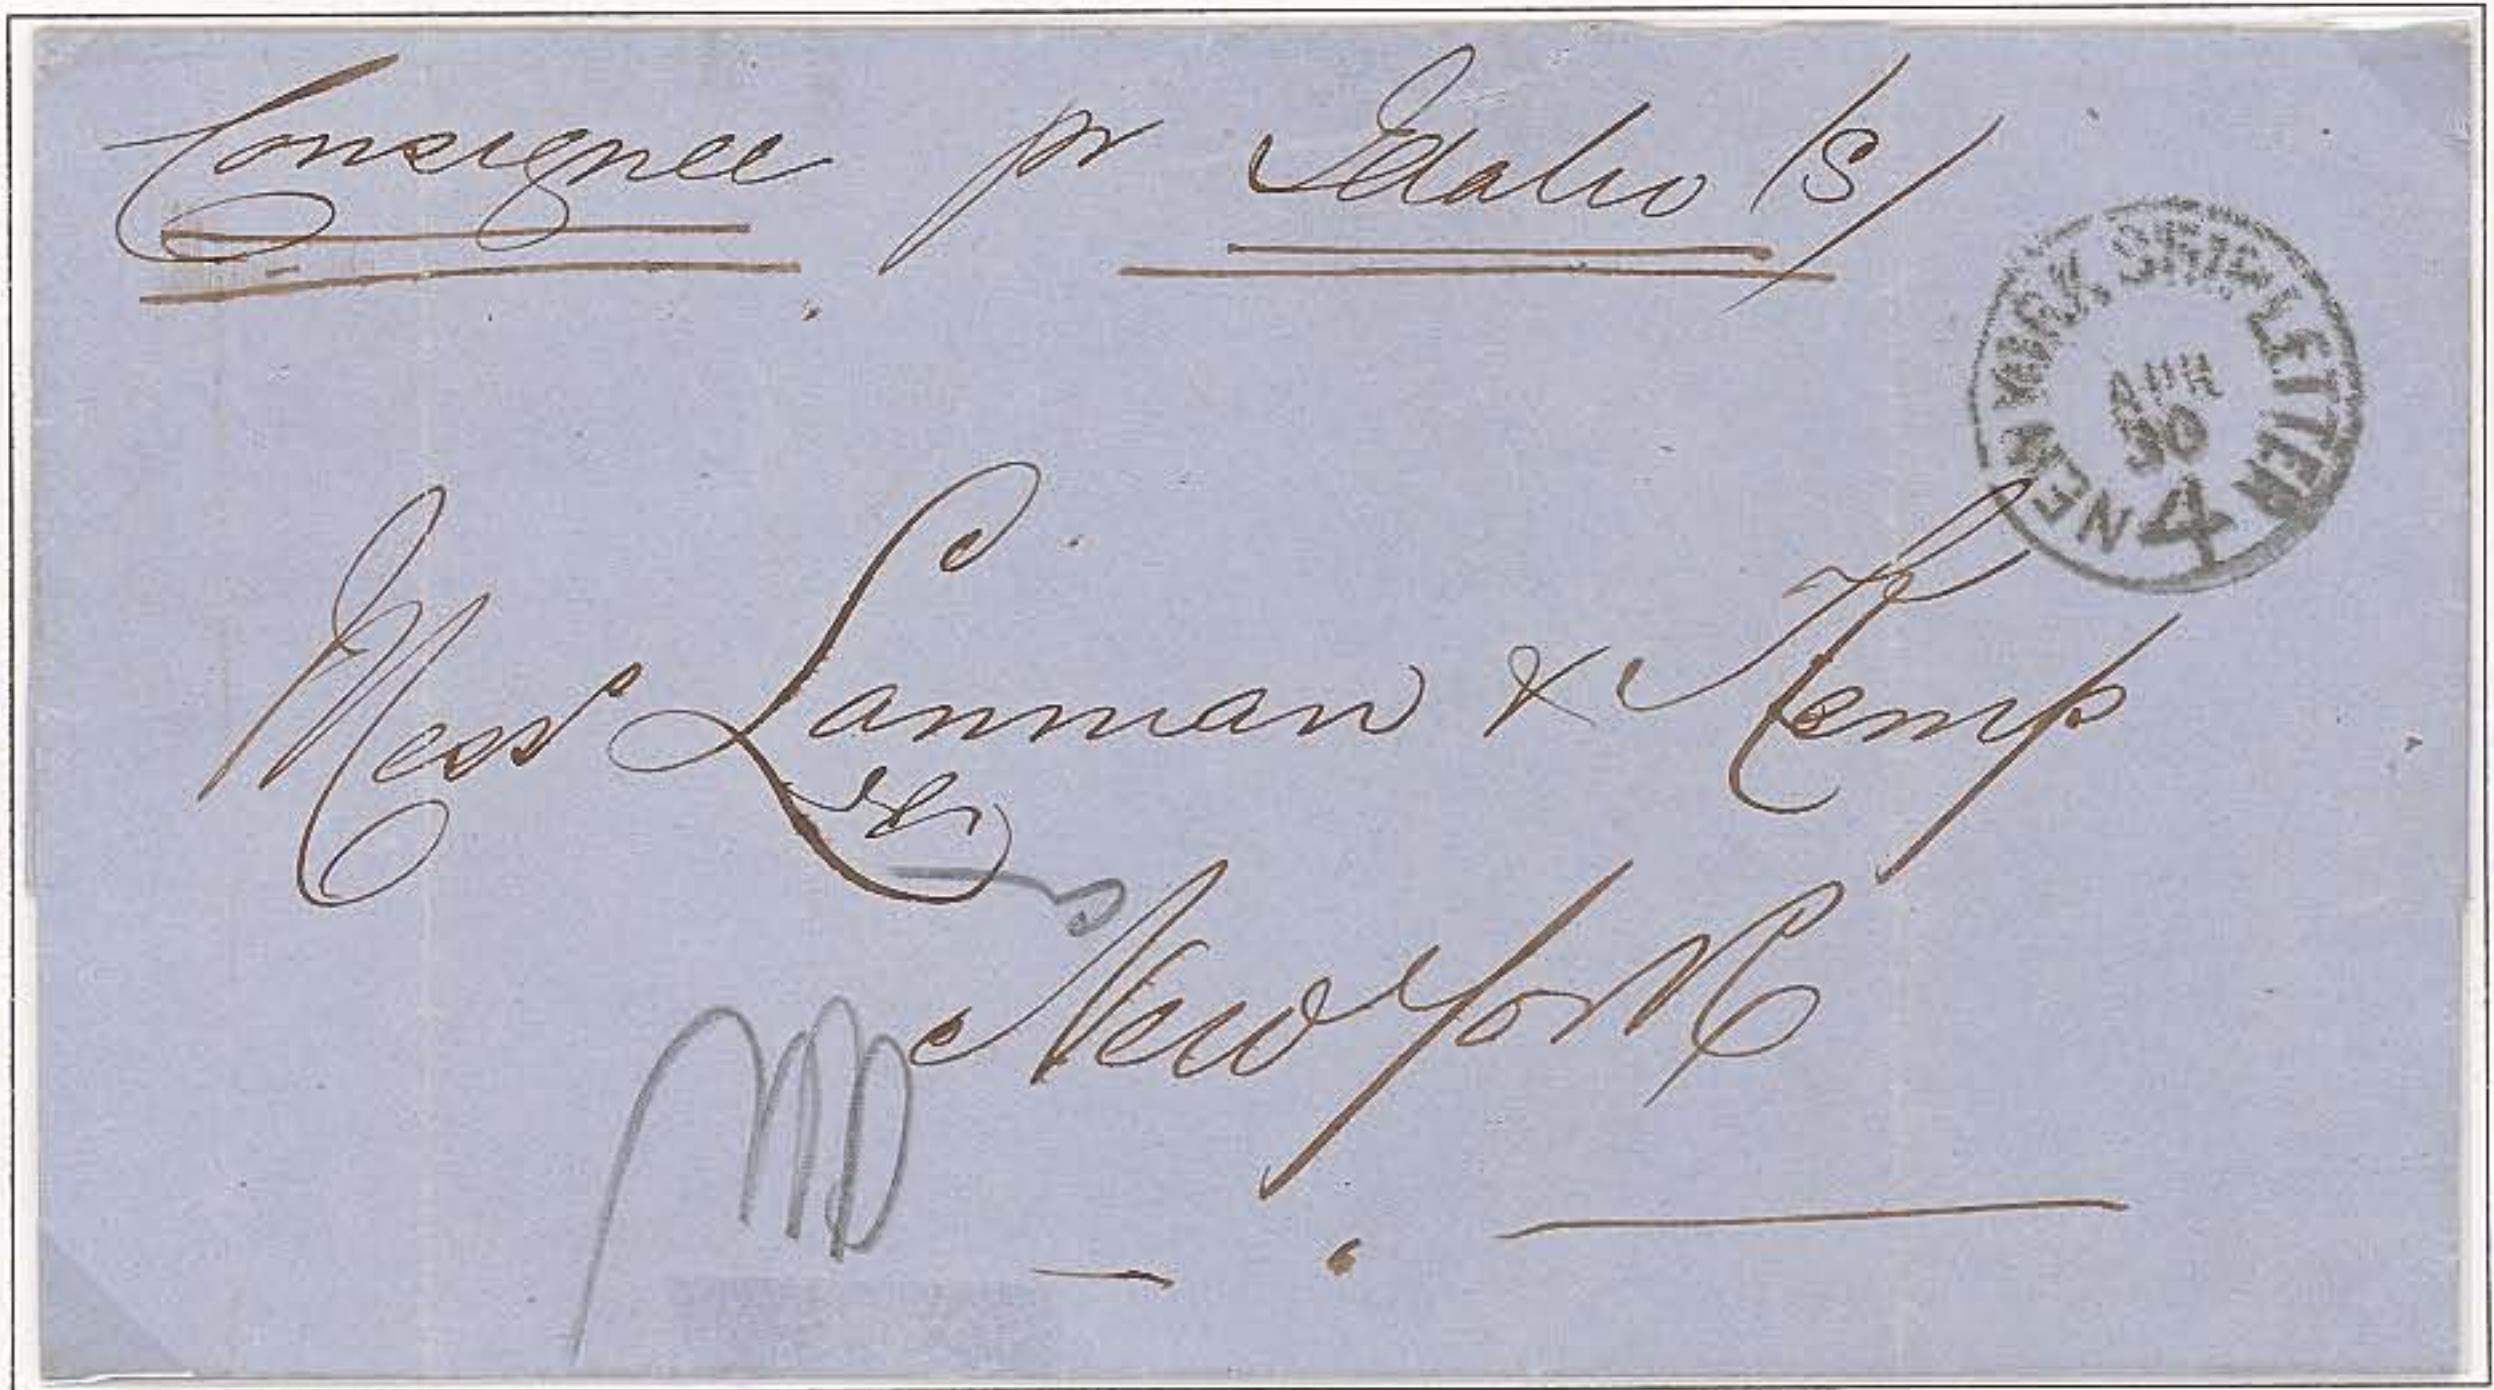 Consignee pr Idaho (S)
NEW YORK SHIP LETTER
APR
30
4
Mess Lanman & Kemp
New York